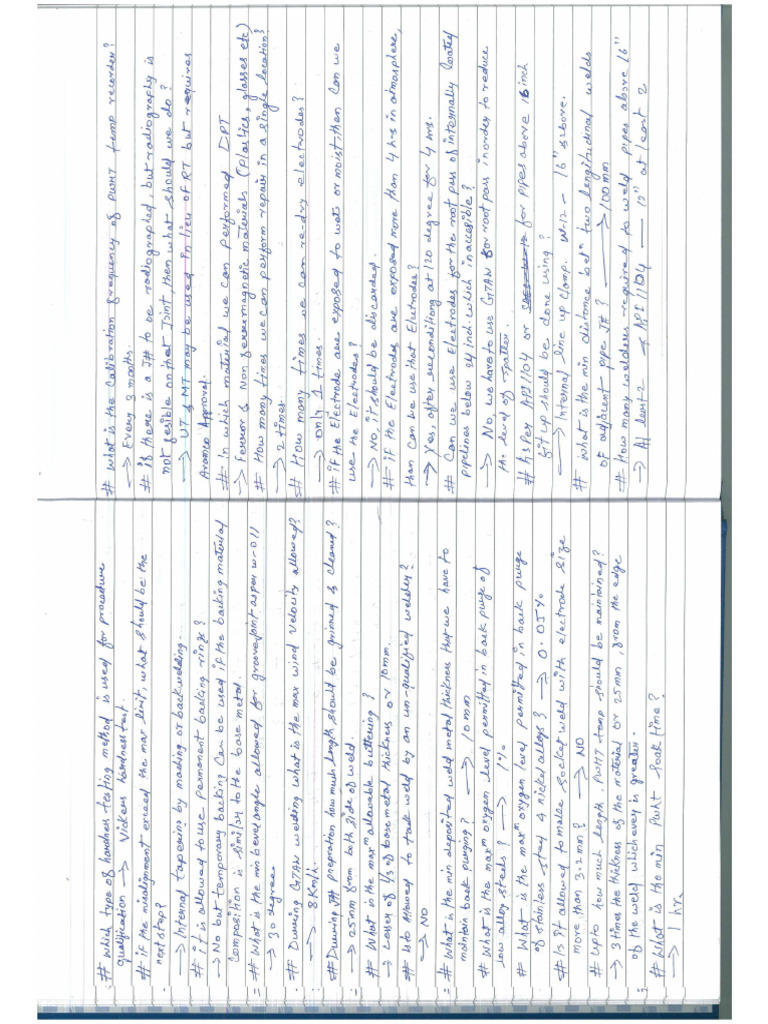 # Which type of hardness testing method is used for procedure
qualification → Vickers hardness test.
# if the misalignment exceed the max limit, what should be the
next step?
→ Internal tapering by maching or back welding.
# it is allowed to use permanent backing rings?
→ No but temporary backing can be used if the backing material
Composition is similar to the base metal.
# What is the min bevel angle allowed for groove joint as per w-011
→ 30 degree
# During GTAW welding what is the max wind velocity allowed?
→ 8 Km/h.
# During preparation how much length should be grined & cleaned?
→ 25mm from both side of weld.
# What is the maxm allowable buttering?
→ Lesser of 1/3 of base metal thickness or 10mm.
# Is to allowed to tack weld by an un-qualified welder?
→ NO
# What is the min deposited weld metal thickness that we have to
maintain back purging? → 10mm
# What is the maxm oxygen level permitted in back purge of
low alloy steels? → 1%
# What is the maxm oxygen level permitted in back purge
of stainless steel & nickel alloys? → 0.05%
# Is it allowed to make socket weld with electrode size
more than 3.2mm? → NO
# upto how much length, PWHT temp should be maintained?
→ 3 times the thickness of the material or 25mm from the edge
of the weld which ever is greater.
# What is the min Pwht soak time?
→ 1 hr.
# What is the Calibration frequency of PWHT temp recorder?
→ Every 3 months.
# if there is a J# to be radiographed, but radiography is
not fesible on that Joint, then what should we do?
→ UT & MT may be used in lieu of RT but requires
Aramco Approval.
# in which material we can performed DPT
→ Ferror & Non ferromagnetic materials (Plastics, glasses etc)
# How many times we can perform repair in a single location?
→ 2 times.
# How many times we can re-dry electrodes?
→ only 1 times.
# if the Electrode are exposed to wets or moist, then can we
use the Electrodes?
→ No, it should be discarded.
# if the Electrodes are exposed more than 4 hrs in atmosphere,
than can be use that Eletrodes?
→ Yes, after reconditiong at 120 degree for 4 hrs.
# Can we use Electrodes for the root pass of internally Coated
pipelines below 24 inch. which inaccesible?
→ No we have to use GTAW for root pass in order to reduce
the level of spatter.
# As Per API 1104 or for pipes above 16 inch
fit up should be done using?
→ Internal line up clamp. W-12 - 16" & above.
# what is the min distance betn two longitudinal welds
of adjacent pipe J#? → 100mm
# How many welders required to weld pipes above 16"
→ At least 2 → API 1104 — 12" at least 2